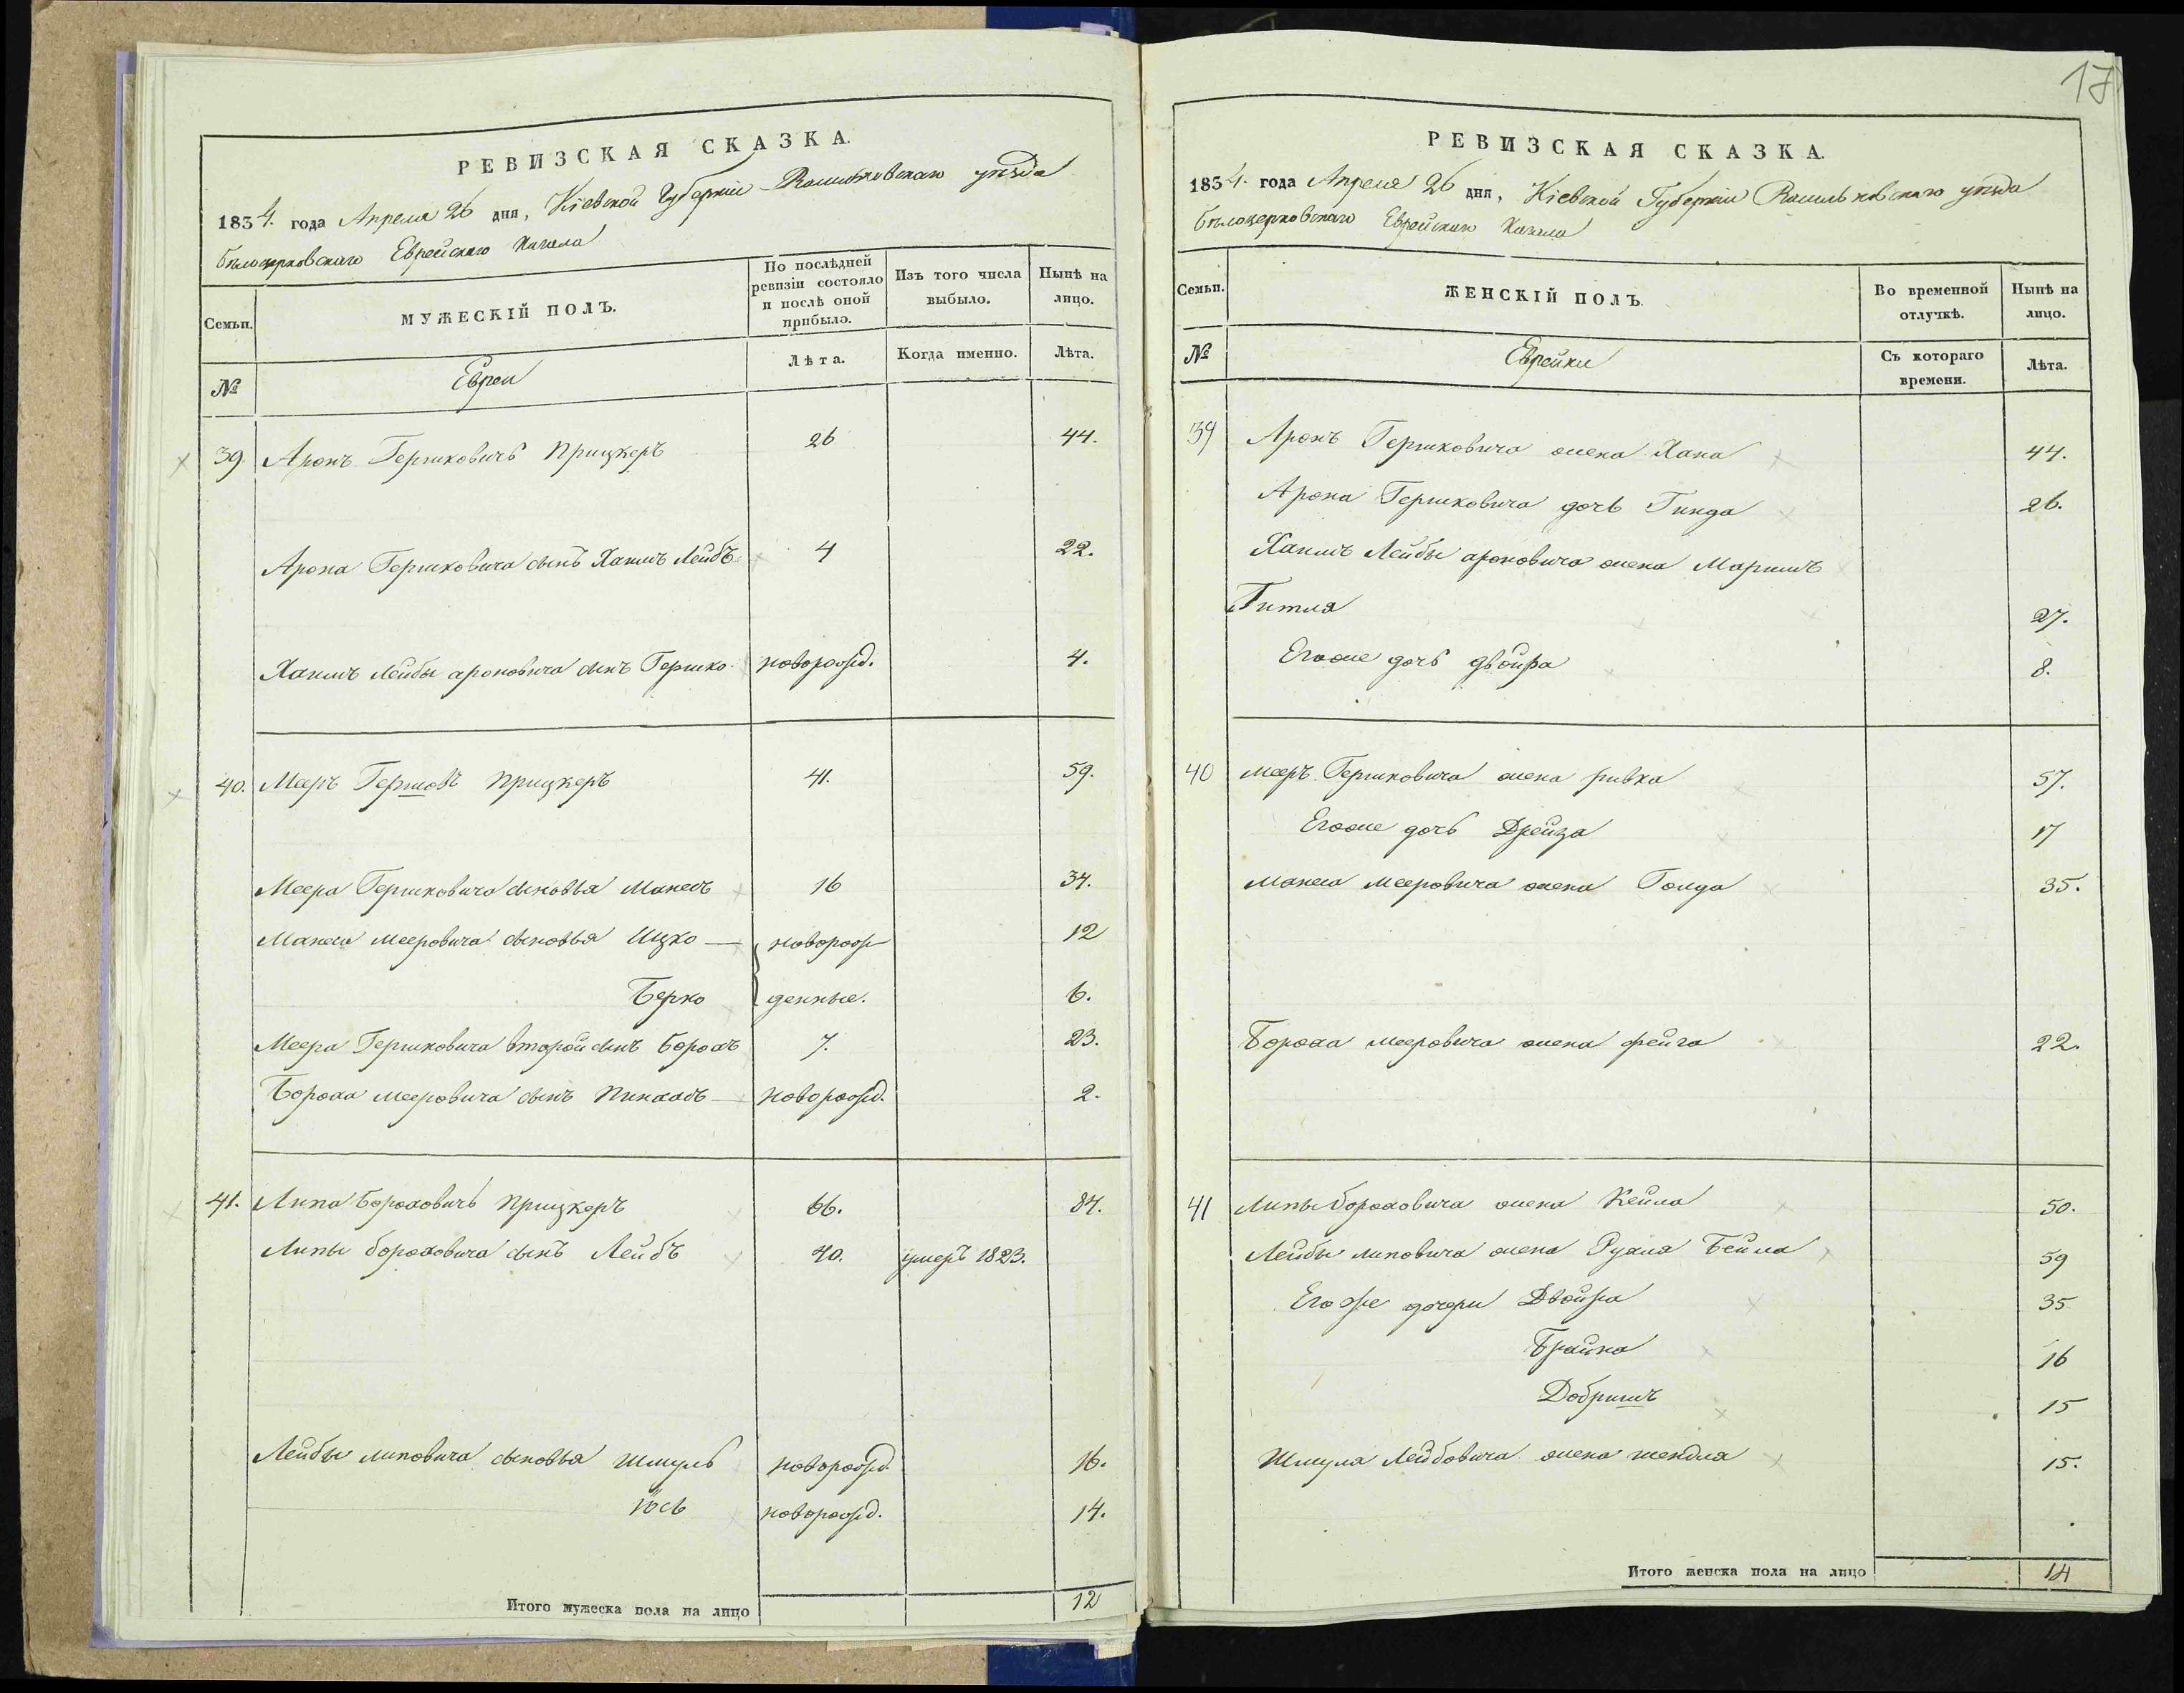 17
РЕВИЗСКАЯ СКАЗКА.
1834. года Апреля 26 дня, Кіевской Губерніи Васильковскаго уѣзда
Бѣлоцерковскаго Еврейскаго Кагала
Семьи.
МУЖЕСКІЙ ПОЛЪ.
По послѣдней ревизіи состояло и послѣ оной прибыло.
Изъ того числа выбыло.
Нынѣ на лицо.
№
Евреи
Лѣта.
Когда именно.
Лѣта.
39. Аронъ Гершковичъ Прицкеръ 26 44.
Арона Гершковича сынъ Хаимъ Лейбъ 4 22.
Хаимъ Лейбы ароновича сынъ Гершко новорожд. 4.
40. Мееръ Гершовъ Прицкеръ 41. 59.
Меера Гершковича сыновья Манесъ 16 34.
Манеса мееровича сыновья Ицко — новорож 12
Берко денные. 6.
Меера Гершковича второй сынъ Борохъ 7. 23.
Бороха мееровича сынъ Пинхасъ — новорожд. 2.
41. Липа Бороховичъ Прицкеръ 66. 84.
Липы бороховича сынъ Лейбъ 40. умеръ 1823.
Лейбы липовича сыновья Шмуль новорожд. 16.
Іось новорожд. 14.
Итого мужеска пола на лицо 12
РЕВИЗСКАЯ СКАЗКА.
1834. года Апреля 26 дня, Кіевской Губерніи Васильковскаго уѣзда
Бѣлоцерковскаго Еврейскаго Кагала
Семьи.
ЖЕНСКІЙ ПОЛЪ.
Во временной отлучкѣ.
Нынѣ на лицо.
№
Еврейки
Съ котораго времени.
Лѣта.
39 Аронъ Гершковича жена Хана 44.
Арона Гершковича дочь Гинда 26.
Хаимъ Лейбы ароновича жена Маримъ
Гитля 27.
Егоже дочь двойра 8.
40 мееръ Гершковича жена ривка 57.
Егоже дочь Дрейза 17
манеса мееровича жена Голда 35.
Бороха мееровича жена фейга 22.
41 Липы бороховича жена Кейла 50.
Лейбы липовича жена Рухля Бейла 59
Его же дочери Двойра 35
Брайна 16
Добришъ 15
Шмуля Лейбовича жена шендля 15.
Итого женска пола на лицо 14